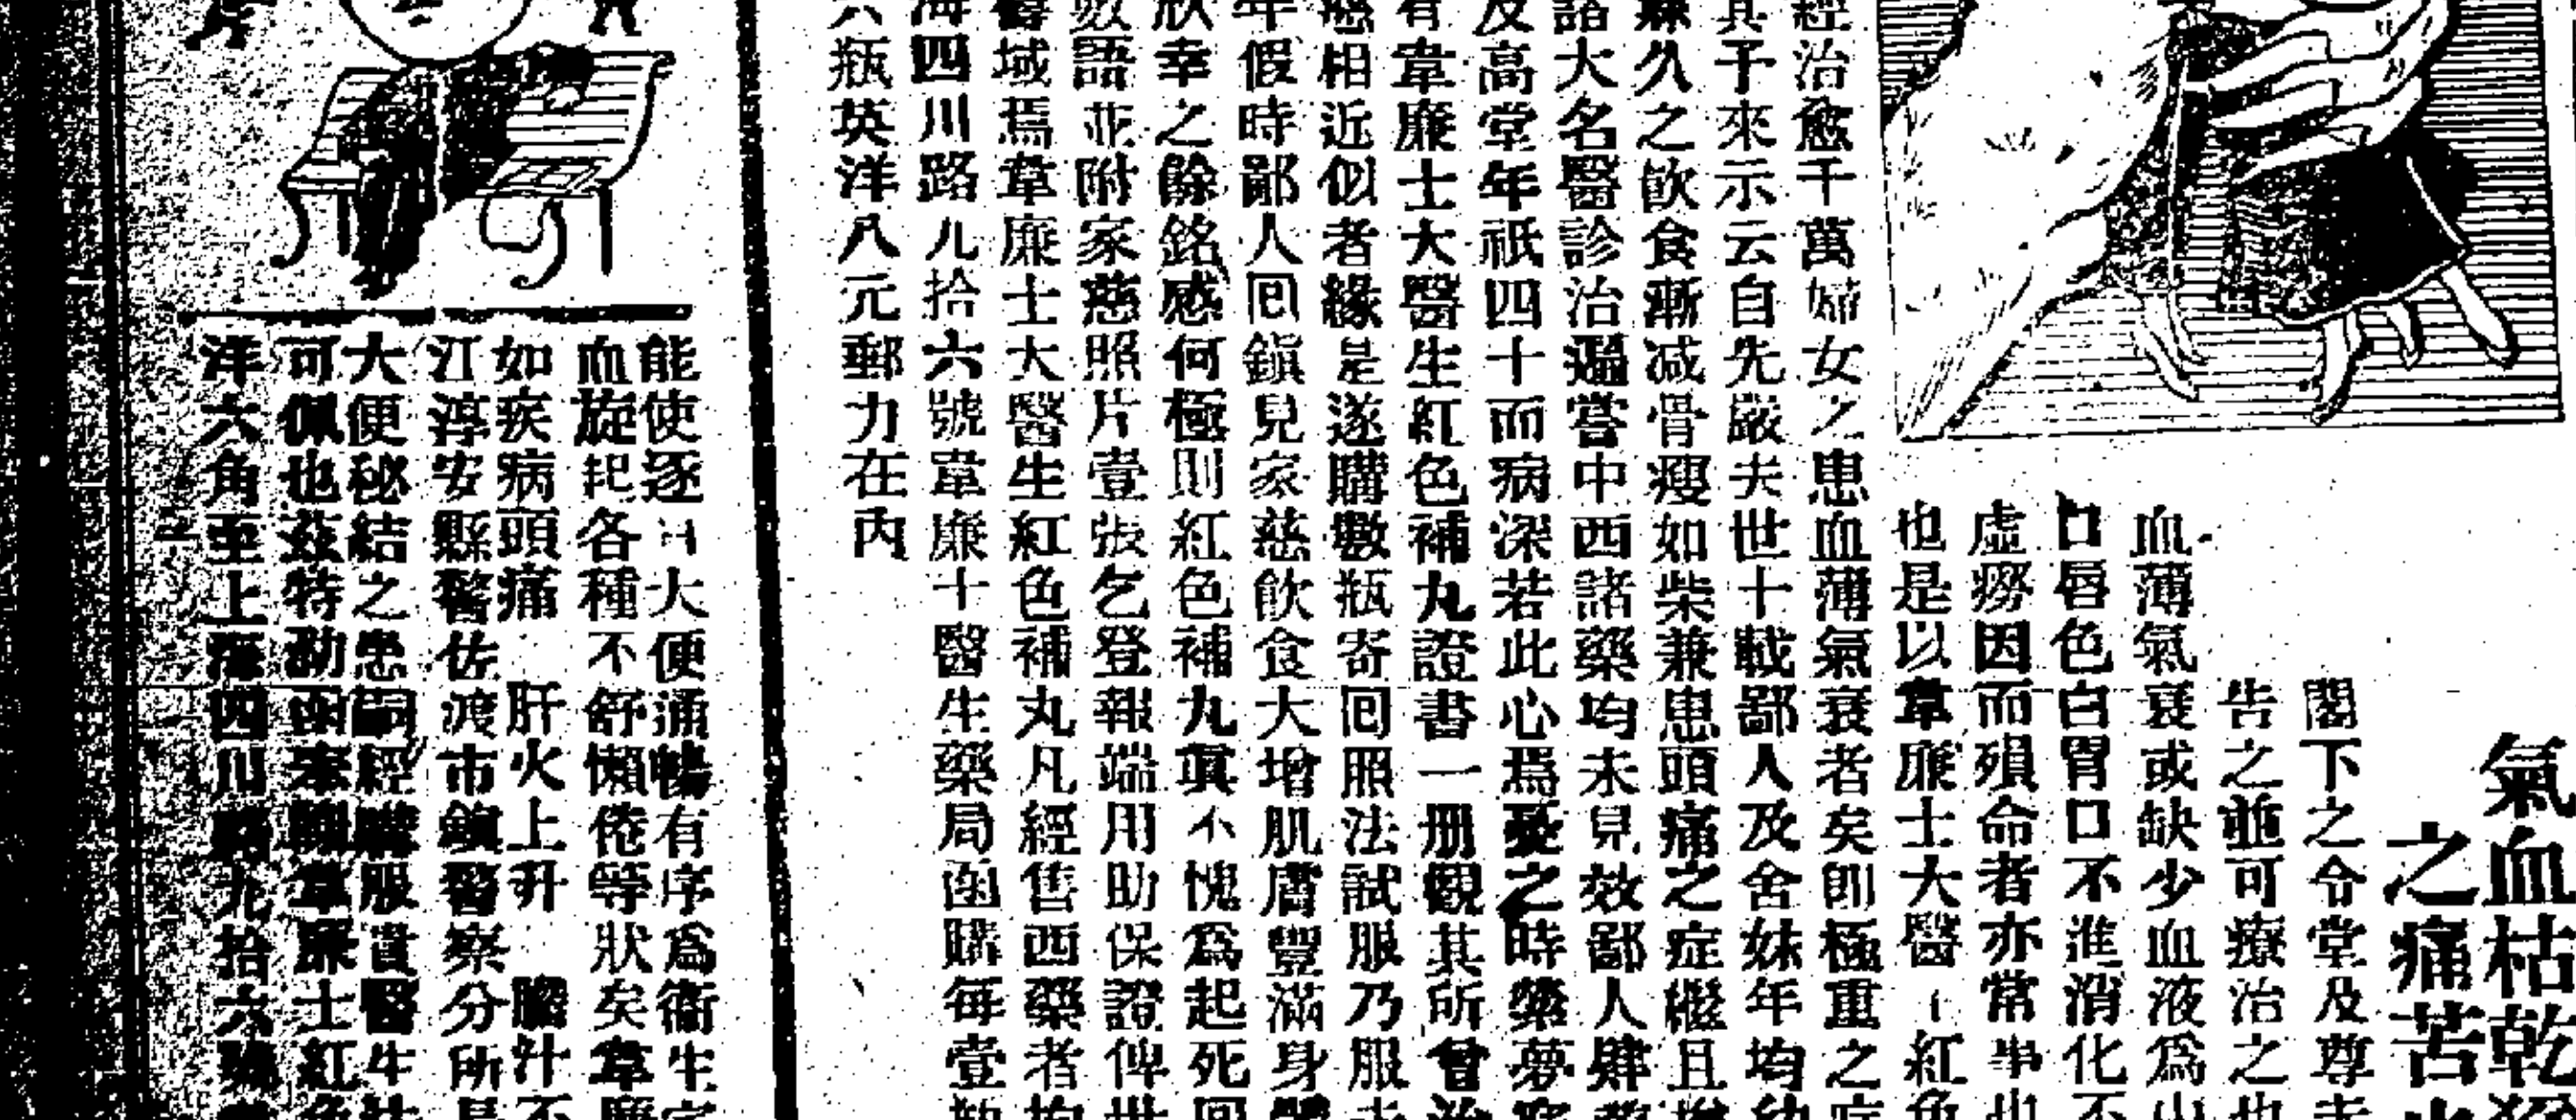 氣血枯乾
之痛苦
閣下之令堂及尊夫
告之並可療治之也
血薄氣衰或缺少血液爲
口唇色白胃口不進消化不
虛癆因而殞命者亦常事也
也是以韋廉士大醫生紅色
經治愈千萬婦女之患血薄氣衰者矣卽極重之症
其予來示云自先嚴夫世十載鄙人及舍妹年均幼
久之飮食漸减骨瘦如柴兼患頭痛之症繼且
諸大名醫診治遍嘗中西諸藥均未見效鄙人肄
及高堂年祇四十而病深若此心焉憂之時縈夢寐
有韋廉士大醫生紅色補丸證書一册觀其所曾治
相近似者緣是遂購數瓶寄囘照法試服乃服未
年假時鄙人囘鎭見家慈飮食大增肌膚豐滿身體
狀幸之餘銘感何極則紅色補丸眞不愧爲起死囘
數語並附家慈照片壹張乞登報端用助保證俾世
醫域焉韋廉士大醫生紅色補丸凡經售西藥者均
海四川路九拾六號韋廉士醫生藥局函購每壹
六瓶英洋八元郵力在內
能使逐日大便通暢有序爲衞生
血旋起各種不舒懶倦等狀矣韋廉
如疾病頭痛 肝火上升 膽汁不
江淳安縣警佐渡市鎭警察分所
大便秘結之患嗣經購服貴醫生
可佩也茲特勒函奉韋廉士紅色
洋六角至上海四川路九拾六號